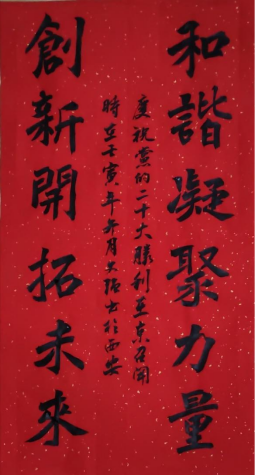 和諧凝聚力量
慶祝黨的二十大勝利在京召開
時在壬寅年月书於西安
創新開拓未來